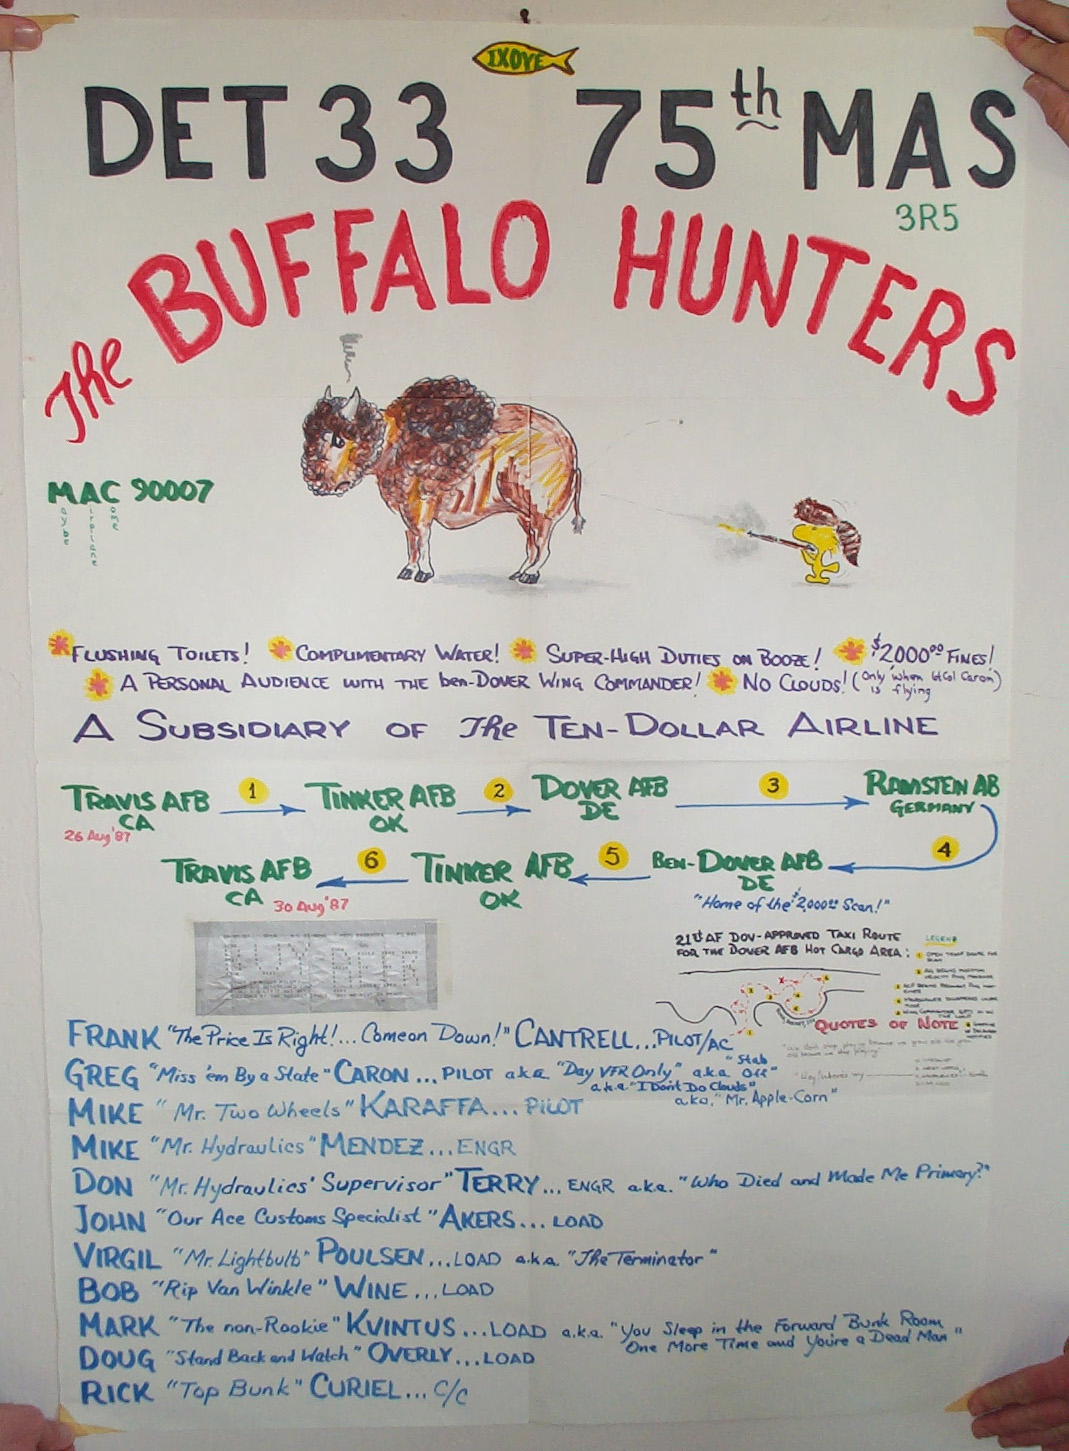 IXOYE
DET 33 75th MAS
3R5
The BUFFALO HUNTERS
MAC 90007
Maybe Airplane Come
FLUSHING TOILETS! COMPLIMENTARY WATER! SUPER-HIGH DUTIES ON BOOZE! $2000.00 FINES!
A PERSONAL AUDIENCE WITH THE ben-DOVER WING COMMANDER! NO CLOUDS! (Only when LtCol Caron is flying)
A SUBSIDIARY OF The TEN-DOLLAR AIRLINE
TRAVIS AFB 1 TINKER AFB 2 DOVER AFB 3 RAMSTEIN AB
CA OK DE GERMANY
26 Aug '87
TRAVIS AFB 6 TINKER AFB 5 BEN-DOVER AFB 4
CA OK DE
30 Aug '87
"Home of the $2,000.00 Scan!"
21st AF DOV-APPROVED TAXI ROUTE
FOR THE DOVER AFB HOT CARGO AREA:
LEGEND
QUOTES OF NOTE
FRANK "The Price Is Right!... Come on Down!" CANTRELL... PILOT/AC
GREG "Miss 'em By a State" CARON... PILOT a.k.a. "Day VFR Only" a.k.a. "Stab Off"
a.k.a. "I Don't Do Clouds"
a.k.a. "Mr. Apple-Corn"
MIKE "Mr. Two Wheels" KARAFFA... PILOT
MIKE "Mr. Hydraulics" MENDEZ... ENGR
DON "Mr. Hydraulics' Supervisor" TERRY... ENGR a.k.a. "Who Died and Made Me Primary?"
JOHN "Our Ace Customs Specialist" AKERS... LOAD
VIRGIL "Mr. Lightbulb" POULSEN... LOAD a.k.a. "The Terminator"
BOB "Rip Van Winkle" WINE... LOAD
MARK "The non-Rookie" KVINTUS... LOAD a.k.a. "You Sleep in the Forward Bunk Room
One More Time and You're a Dead Man"
DOUG "Stand Back and Watch" OVERLY... LOAD
RICK "Top Bunk" CURIEL... C/C